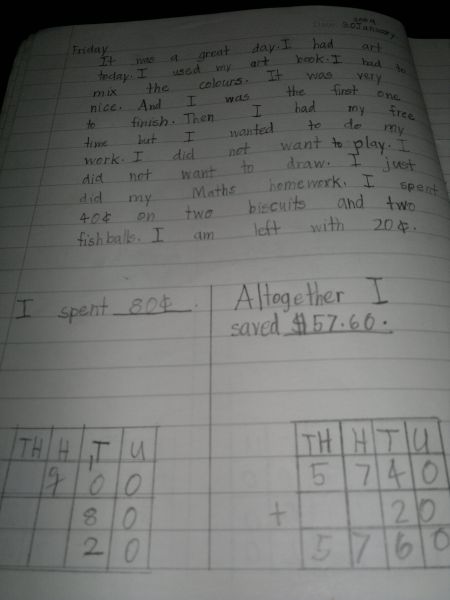 2009
Date 30 January
Friday
It was a great day. I had art
today. I used my art book. I had to
mix the colours. It was very
nice. And I was the first one
to finish. Then I had my free
time but I wanted to do my
work. I did not want to play. I
did not want to draw. I just
did my Maths homework. I spent
40¢ on two biscuits and two
fishballs. I am left with 20¢.
I spent 80¢.
Altogether I
saved $57.60.
TH H T U
0 0
8 0
2 0
TH H T U
5 7 4 0
+ 2 0
5 7 6 0